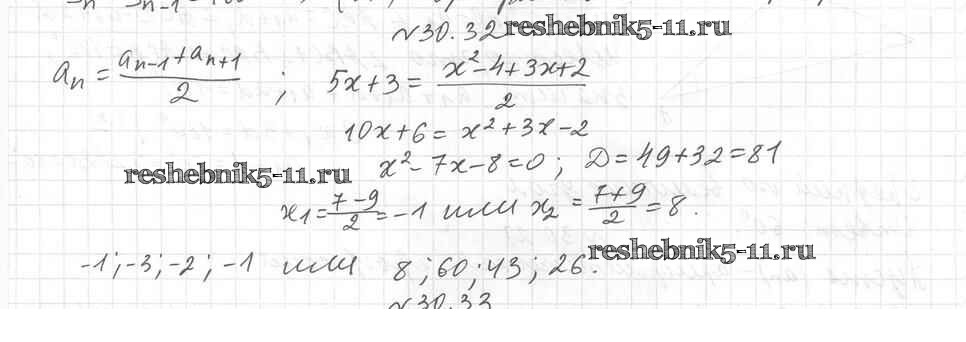 №30.32 reshebnik5-11.ru
aₙ = (aₙ₋₁ + aₙ₊₁)/2 ; 5x+3 = (x²-4+3x+2)/2
10x+6 = x²+3x-2
x²-7x-8=0; D=49+32=81
reshebnik5-11.ru
x₁ = (7-9)/2 = -1 или x₂ = (7+9)/2 = 8.
reshebnik5-11.ru
-1; -3; -2; -1 или 8; 60; 43; 26.
№30.33